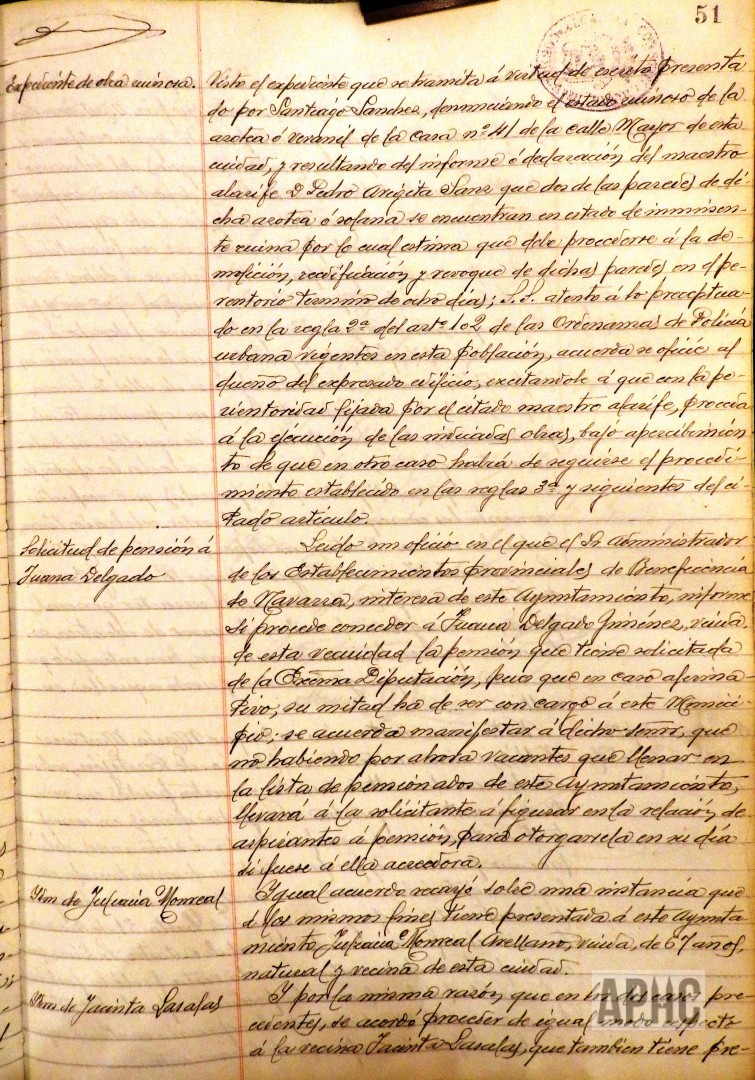 51
Expediente de obra ruinosa.
Visto el expediente que se tramita á virtud de escrito presenta
do por Santiago Sanchez, denunciando el estado ruinoso de la
azotea ó veranil de la casa nº 41 de la calle Mayor de esta
ciudad, y resultando del informe ó declaración del maestro
alarife D. Pedro Arigita Sanz que dos de las paredes de di-
cha azotea ó solana se encuentran en estado de inminen-
te ruina por lo cual estima que debe procederse á la de-
molición, reedificación y revoque de dichas paredes en el pe-
rentorio termino de ocho días; S.S. atento á lo preceptua-
do en la regla 2ª del artº 102 de las Ordenanzas de Policía
urbana vigentes en esta población, acuerda se oficie al
dueño del expresado edificio, excitandole á que con la pe-
rentoriedad fijada por el citado maestro alarife, proceda
á la ejecución de las indicadas obras, bajo apercibimien
to de que en otro caso habrá de seguirse el procedi-
miento establecido en las reglas 3ª y siguientes del ci-
tado artículo.
Solicitud de pensión á
Juana Delgado
Leido un oficio en el que el Sr Administrador
de los Establecimientos provinciales de Beneficencia
de Navarra, interesa de este Ayuntamiento, informe
si procede conceder á Juana Delgado Jiménez, viuda
de esta vecindad la pensión que tiene solicitada
de la Excma Diputación, pues que en caso afirma-
tivo, su mitad ha de ser con cargo á este Munici-
pio; se acuerda manifestar á dicho señor, que
no habiendo por ahora vacantes que llenar en
la lista de pensionados de este Ayuntamiento,
llevará á la solicitante á figurar en la relación de
aspirantes á pensión, para otorgarsela en su día
si fuese á ella acreedora.
Idm de Juliana Monreal
Igual acuerdo recayó sobre una instancia que
á los mismos fines tiene presentada á este Ayunta
miento Juliana Monreal Arellano, viuda, de 67 años,
natural y vecina de esta ciudad.
Idm de Jacinta Lasalas
Y por la misma razón, que en los dos casos pre-
cedentes, se acordó proceder de igual modo respecto
á la vecina Jacinta Lasalas, que tambien tiene pre-
APHC